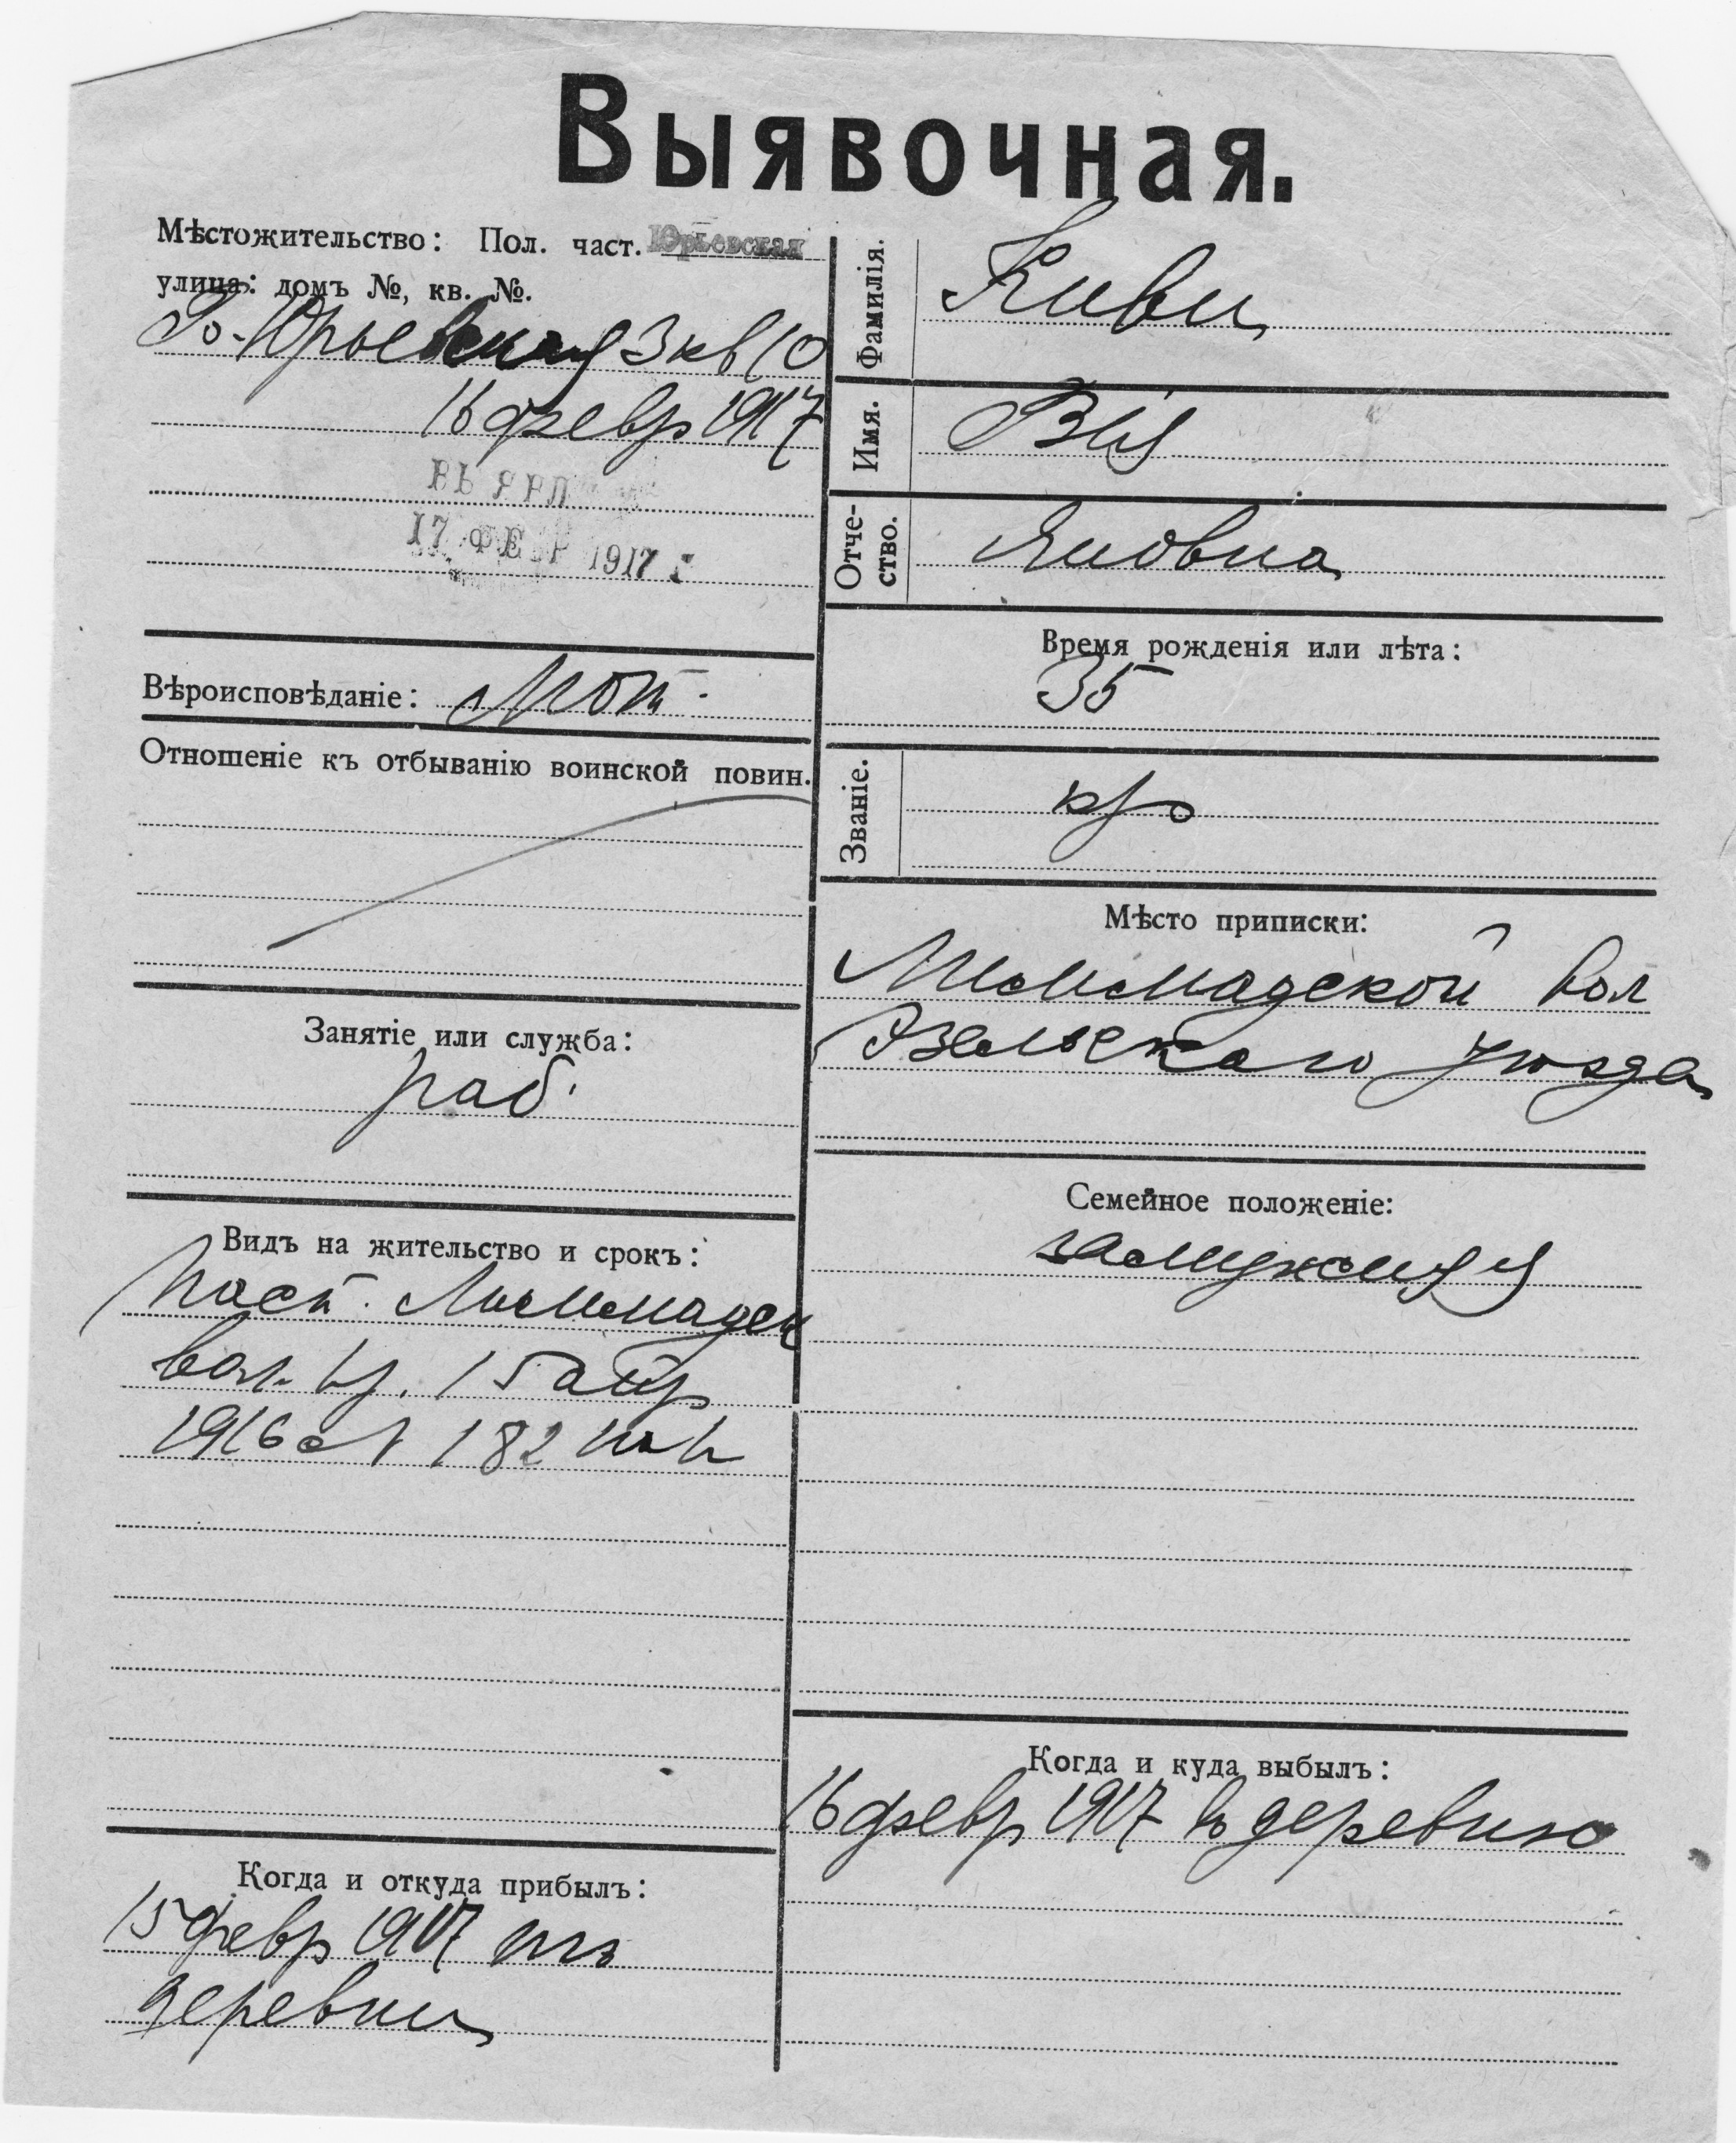 Выявочная.
Мѣстожительство: Пол. част. Юрьевская
улица: домъ №, кв. №.
Юрьевская 3 кв 10
16 февр 1917
17 ФЕВР 1917 г
Вѣроисповѣданіе: Лют.
Отношеніе къ отбыванію воинской повин.
Занятіе или служба:
раб.
Видъ на жительство и срокъ:
вол. 15 апр
1916 182
Когда и откуда прибылъ:
15 февр 1917 изъ
деревни
Фамилія. Киви
Имя.
Отче-
ство.
Время рожденія или лѣта:
35
Званіе. кр
Мѣсто приписки:
вол
Эзельскаго уѣзда
Семейное положеніе:
замужняя
Когда и куда выбылъ:
16 февр 1917 въ деревню